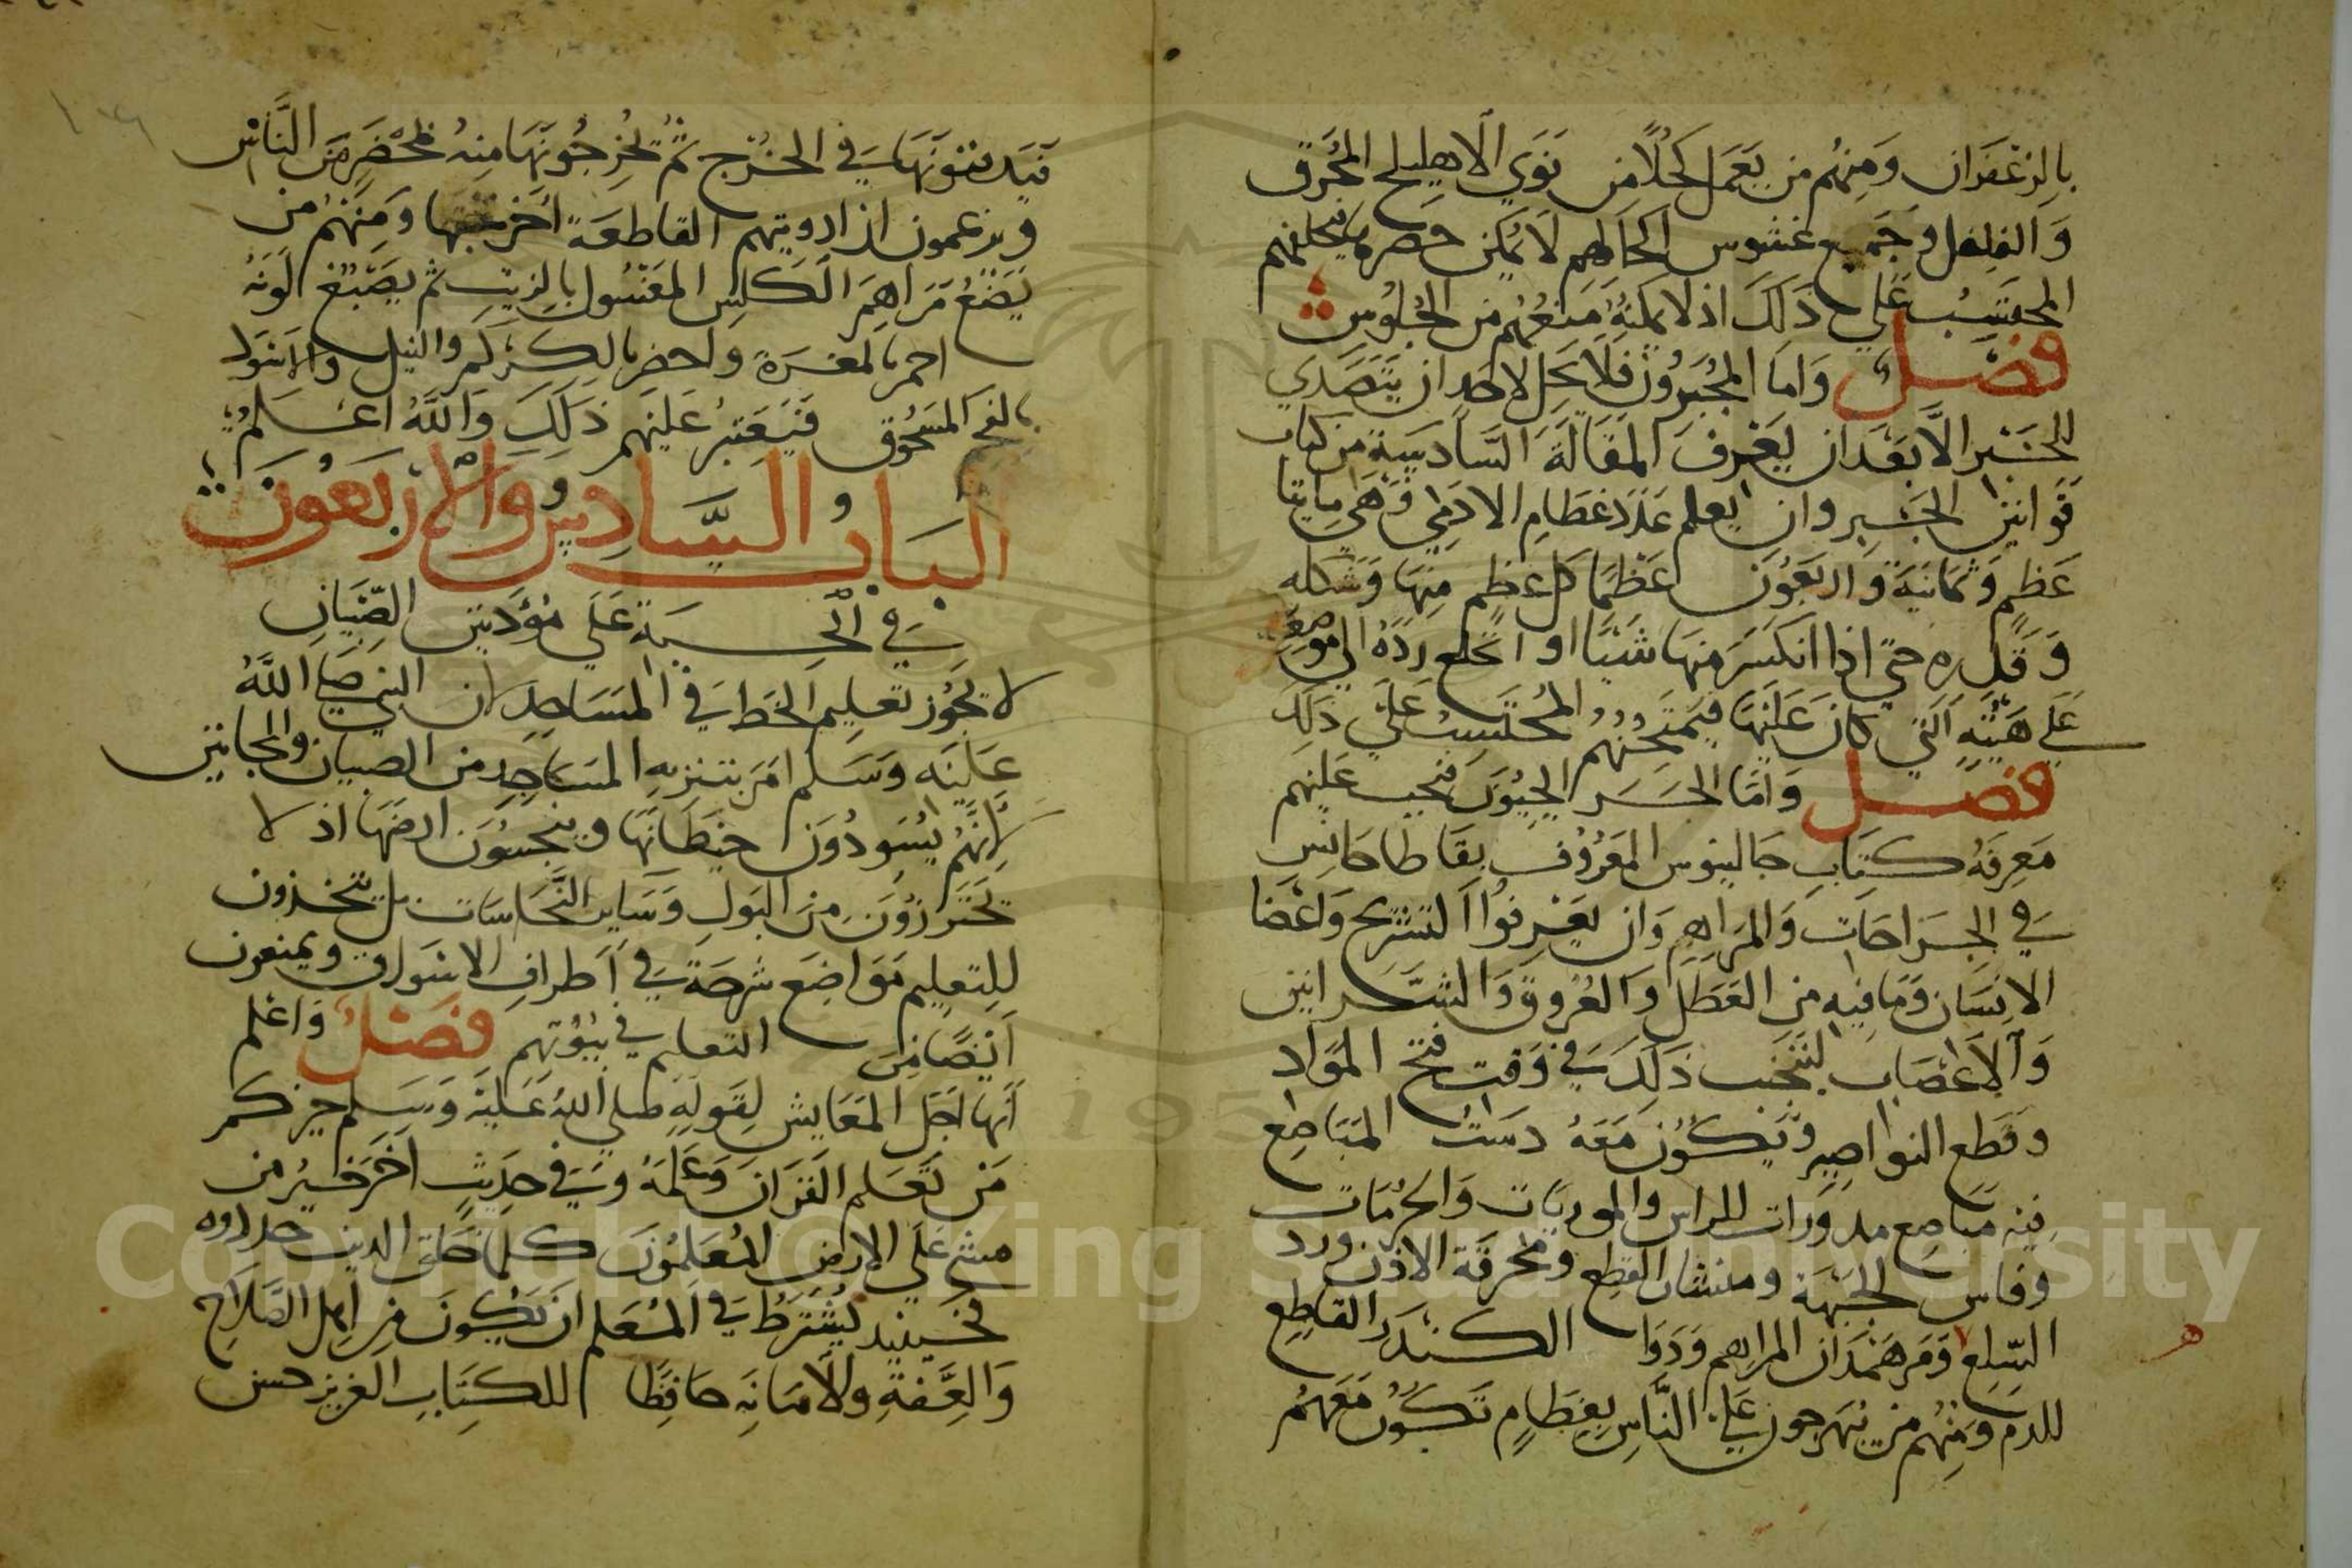 بالزعفران ومنهم من يعمل كحلا من نوي الاهليلج المحرق
والفلفل وجميع غشوس اكحالهم لا يمكن حصره فيحلفهم
المحتسب علي ذلك اذ لا يمكنه منعهم من الجلوس
فصل واما المجبرون فلا يحل لاحد ان يتصدي
للجبر الا بعد ان يعرف المقالة السادسة من كتاب
قوانين الجبر وان يعلم عدد عظام الادمي وهي مايتا
عظم وثمانية واربعون عظما كل عظم منها وشكله
وقدره حتي اذا انكسر منها شيئا او انخلع رده الي موضعه
علي هيئته التي كان عليها فيمتحنهم المحتسب علي ذلك
فصل واما الجرايحيون فيجب عليهم
معرفة كتاب جالينوس المعروف بقاطاجانس
في الجراحات والمراهم وان يعرفوا التشريح واعضا
الانسان وما فيه من العضل والعروق والشرايين
والاعصاب ليتجنب ذلك في وقت فتح المواد
وقطع البواصير ويكون معه دست المباضع
فيه مباضع مدورات الراس والموربات والحرمات
وفاس الجبهة ومنشار القطع ومخرفة الاذن وورد
السلع ومرهمدان المراهم ودوا الكندر القاطع
للدم ومنهم من يبهرجون علي الناس بعظام تكون معهم
فيدفنونها في الجرح ثم يخرجونها منه بمحضر من الناس
ويزعمون ان ادويتهم القاطعة اخرجتها ومنهم من
يضع مراهم الكلس المغسول بالزيت ثم يصبغ لونه
احمر بالمغرة واخضر بالكركم والنيل والاسود
بالفحم المسحوق فيعتبر عليهم ذلك والله اعلم
الباب السادس والاربعون
في الحسبة علي مؤدبين الصبيان
لا يجوز تعليم الخط في المساجد لان النبي صلي الله
عليه وسلم امر بتنزيه المساجد من الصبيان والمجانين
لانهم يسودون حيطانها وينجسون ارضها اذ لا
يحترزون من البول وساير النجاسات بل يتخذون
للتعليم مواضع شرحة في اطراف الاسواق ويمنعون
ايضا من التعليم في بيوتهم فصل واعلم
انها اجل المعايش لقوله صلي الله عليه وسلم خيركم
من تعلم القران وعلمه وفي حديث اخر خير من
مشي علي الارض المعلمون كلما خلق الدين جددوه
فحينيذ يشترط في المعلم ان يكون من اهل الصلاح
والعفة والامانه حافظا للكتاب العزيز حسن
Copyright © King Saud University
1957